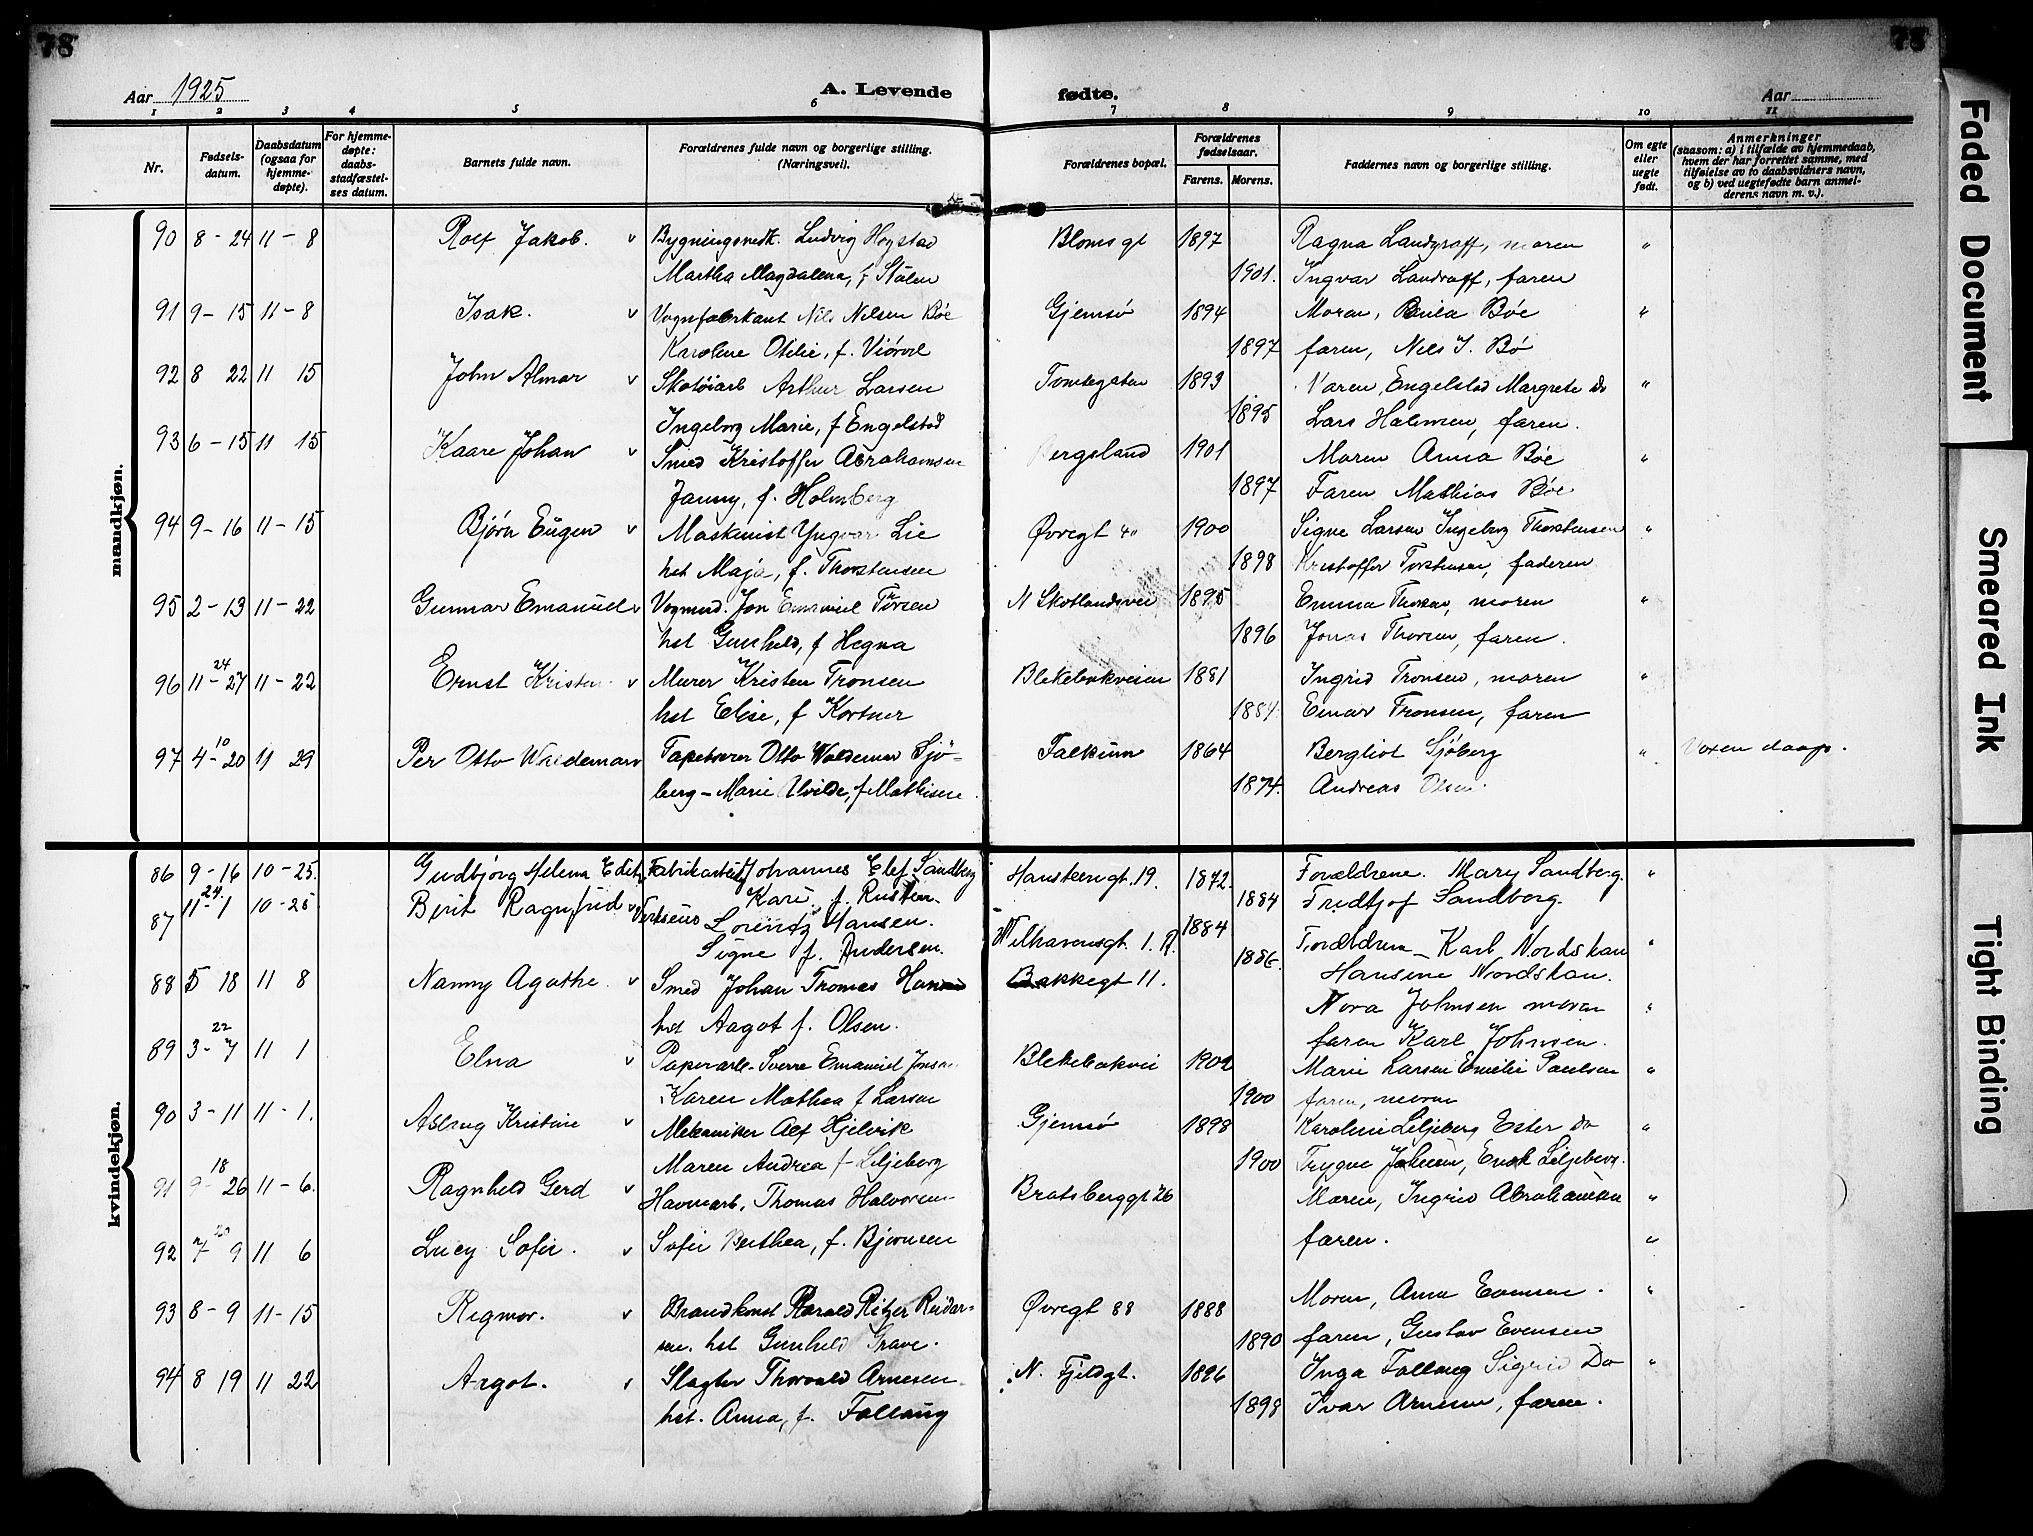 78
78
Aar 1925
A. Levende fødte.
Aar
1 2 3 4 5 6 7 8 9 10 11
Nr.
Fødsels-
datum.
Daabsdatum
(ogsaa for
hjemme-
døpte).
For hjemme-
døpte:
daabs-
stadfæstel-
ses datum.
Barnets fulde navn.
Forældrenes fulde navn og borgerlige stilling.
(Næringsvei).
Forældrenes bopæl.
Forældrenes
fødselsaar.
Farens. Morens.
Faddernes navn og borgerlige stilling.
Om egte
eller
uegte
født.
Anmerkninger
(saasom: a) i tilfælde av hjemmedaab,
hvem der har forrettet samme, med
tilføielse av to daabsvidners navn,
og b) ved uegtefødte barn anmel-
derens navn m. v.).
mandkjøn.
90 8-24 11-8 Rolf Jakob. v Ludvig Hogstad Blomsgt 1897 Ragna Landgraff, moren "
Martha Magdalena, f. Stølen 1901. Ingvar Landraff, faren
91 9-15 11-8 Isak. v Vognfabrikant Nils Nilsen Bøe Gjemsø 1894 Moren, Bøe "
Karoline Otilie, f. 1897 faren, Nils J. Bø
92 8 22 11 15 John Almar v Skotøiarb Arthur Larsen Tomtegaten 1893 Maren Engelstad Margrete do "
Ingeborg Marie, f Engelstad 1895 Lars Halvorsen, faren.
93 6-15 11 15 Kaare Johan v Smed Kristoffer Abrahamsen Bergsland 1901 Moren Anna Bøe "
Janny, f. Holmberg 1897 Faren Mathias Bøe
94 9-16 11-15 Bjørn Eugen v Maskinist Yngvar Lie Øvregt 40 1900 Signe Larsen Ingeborg Thorstensen "
hst Maja, f. Thorstensen 1898 Kristoffer Torstensen, faderen
95 2-13 11-22 Gunnar Emanuel v Vognmd. Jon Emanuel Torsen N Skotlandsvei 1895 Emma Thorsen, moren "
hst Gunhild, f Hegna 1896 Jonas Thorsen, faren.
24
96 11-27 11-22 Ernst Kristen v Murer Kristen Tronsen Blekebakveien 1881 Ingrid Tronsen, moren "
hst Elise, f Kortner 1884. Einar Tronsen, faren
10
97 4-20 11 29 Per Otto Waldemar v Tapetserer Otto Waldemar Sjö- Falkum 1864 Bergliot Sjöberg " Voxen daap.
berg - Marie Hvilde, f Mathisen 1874. Andreas Olsen.
kvindekjøn.
86 9-16 10-25. Gudbjørg Helena Edith Fabrikarbeid Johannes Elef Sandberg Hansteengt. 19. 1872. Forældrene. Mary Sandberg. "
24
Kari f. 1884 Fredtjof Sandberg.
87 11-1 10-25 Berit Ragnfrid v Hansen. Welhavensgt. 1. 1884 Forældrene - Karl Nordskau "
Signe f. Andersen. 1886. Hansine Nordskau.
88 5 18 11 8 Nanny Agathe. v Smed Johan Tromas Hansen Bakkegt 11. Nora Johnsen moren "
hst Aagot f. Olsen. faren Karl Johnsen.
22
89 3-7 11 1 Elna v Papirarb- Sverre Emanuel Jensen Blekebakvei 1902 Marie Larsen Emilie Paulsen "
Karen Mathea f Larsen 1900 faren, moren
90 3-11 11-1. Aslaug Kristine v Mekaniker Alf Hjelvik Gjemsø 1898 Karoline Liljeberg Ester Do "
Maren Andrea f Liljeberg 1900 Trygve Johnsen, Erick Liljeberg.
18
91 9-26 11-6. Ragnhild Gerd v Havnearb. Thomas Halvorsen Bratsberggt 26 Maren, Ingrid Abrahamsen "
20
92 7 9 11 6 Lucy Sofie. v Sofie Berthea, f. Bjørnsen faren. "
93 8-9 11-15 Rigmor. v Brandkonst Harald Ritzer Reidar- Øvregt 88 1888 Moren, Anna Evensen. "
sen. hst Gunhild Grave. 1890 faren, Gustav Evensen
94 8 19 11 22 Aagot. v Slagter Thorvald Arnesen. N. Fjeldgt. 1896 Inga Follaug Sigrid Do "
hst. Anna, f. Follaug 1898 Ivar Arnesen, faren.
Faded Document
Smeared Ink
Tight Binding